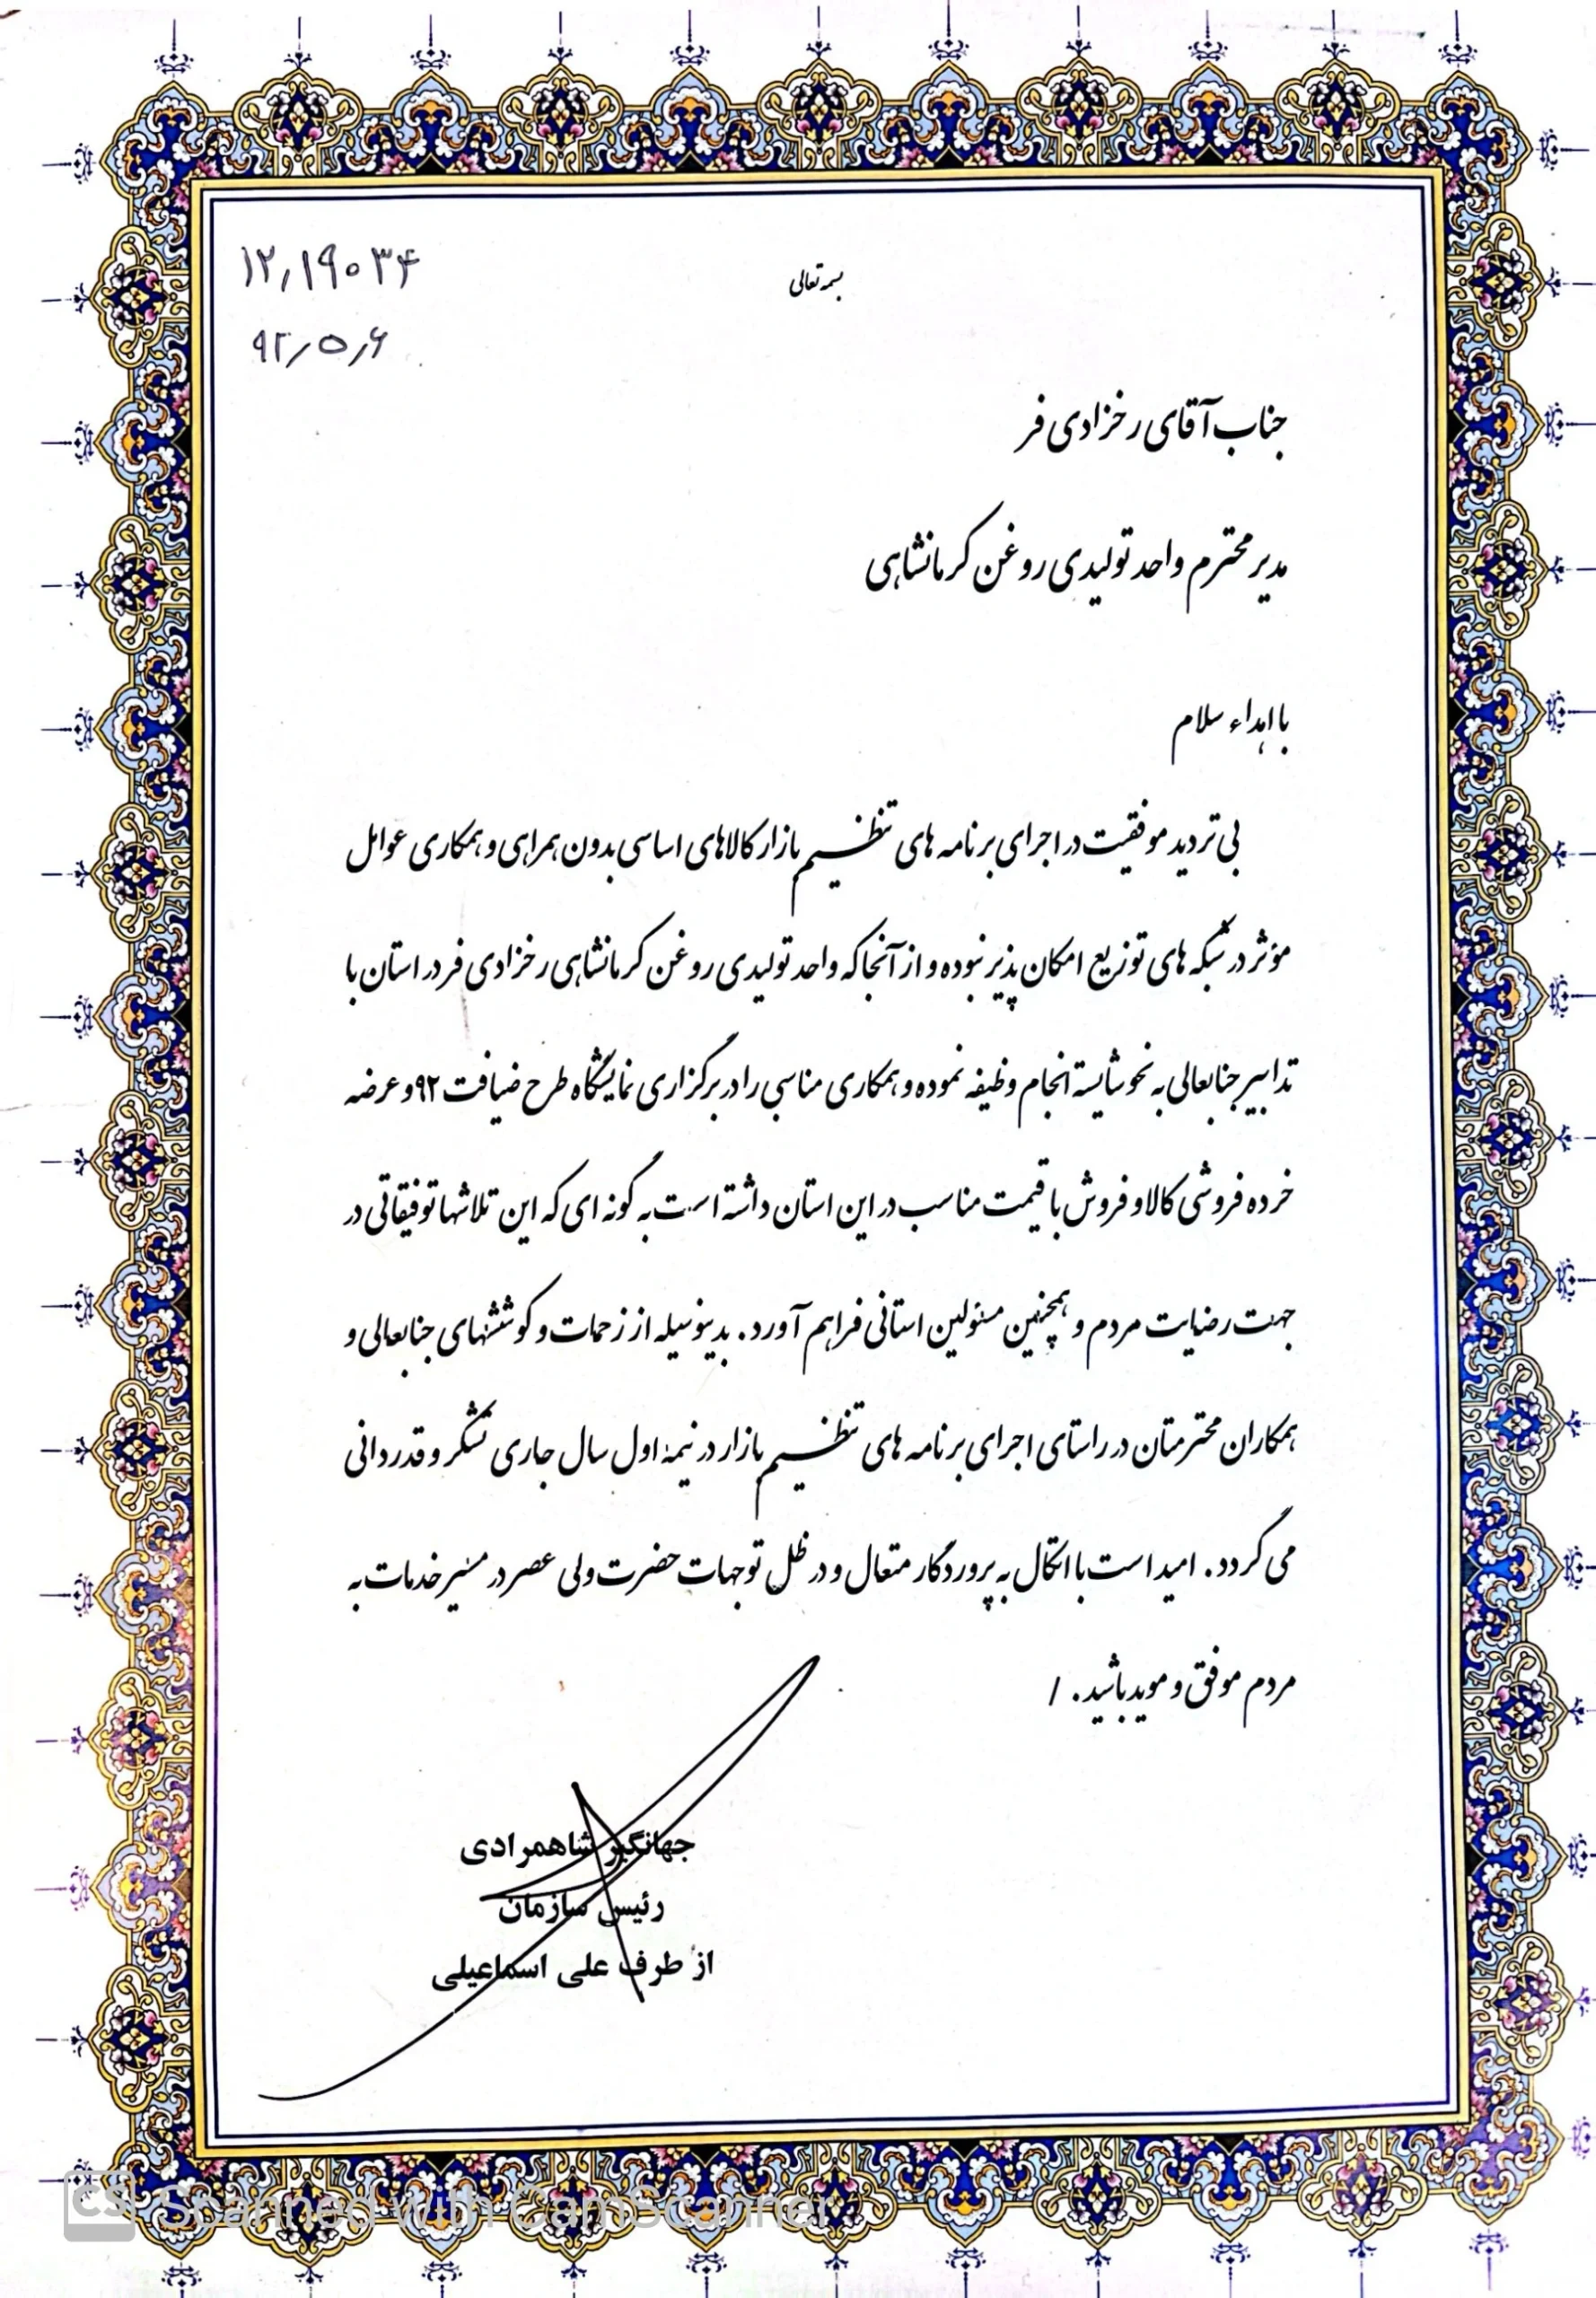 ۱۲٫۱۹۰۳۴
بسمه تعالی
۹۲٫۵٫۶
جناب آقای رخزادی فر
مدیر محترم واحد تولیدی روغن کرمانشاهی
با اهداء سلام
بی تردید موفقیت در اجرای برنامه های تنظیم بازار کالاهای اساسی بدون همراهی و همکاری عوامل
مؤثر در شبکه های توزیع امکان پذیر نبوده و از آنجا که واحد تولیدی روغن کرمانشاهی رخزادی فر در استان با
تدابیر جنابعالی به نحو شایسته انجام وظیفه نموده و همکاری مناسبی را در برگزاری نمایشگاه طرح ضیافت ۹۲ و عرضه
خرده فروشی کالا و فروش با قیمت مناسب در این استان داشته است به گونه ای که این تلاشها توفیقاتی در
جهت رضایت مردم و همچنین مسئولین استانی فراهم آورد. بدینوسیله از زحمات و کوششهای جنابعالی و
همکاران محترمتان در راستای اجرای برنامه های تنظیم بازار در نیمه اول سال جاری تشکر و قدردانی
می گردد. امید است با اتکال به پروردگار متعال و در ظل توجهات حضرت ولی عصر در مسیر خدمات به
مردم موفق و موید باشید. /
جهانگیر شاهمرادی
رئیس سازمان
از طرف علی اسماعیلی
CS Scanned with CamScanner